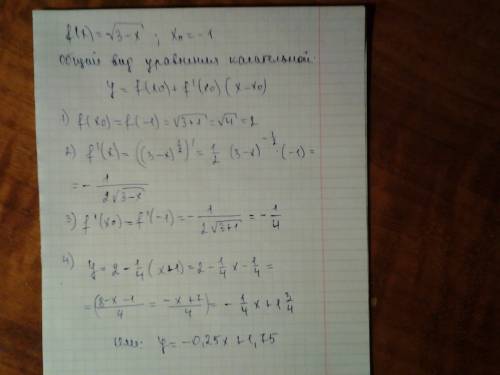 f(x)=√(3-x) ; x₀=-1
Общий вид уравнения касательной:
y = f(x₀)+f'(x₀)(x-x₀)
1) f(x₀)=f(-1)=√(3+1)=√4=2
2) f'(x)=((3-x)^(1/2))'=1/2·(3-x)^(-1/2)·(-1)=
=-1/(2√(3-x))
3) f'(x₀)=f'(-1)=-1/(2√(3+1))=-1/4
4) y=2-1/4(x+1)=2-1/4x-1/4=
=((8-x-1)/4=(-x+7)/4)=-1/4x+1 3/4
или: y=-0,25x+1,75